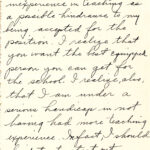 inexperience in teaching as
a possible hindrance to my
being accepted for the
position. I realize that
you want the best equipped
person you can get for
the school. I realize, also,
that I am under a
serious handicap in not
having had more teaching
experience. In fact, I should